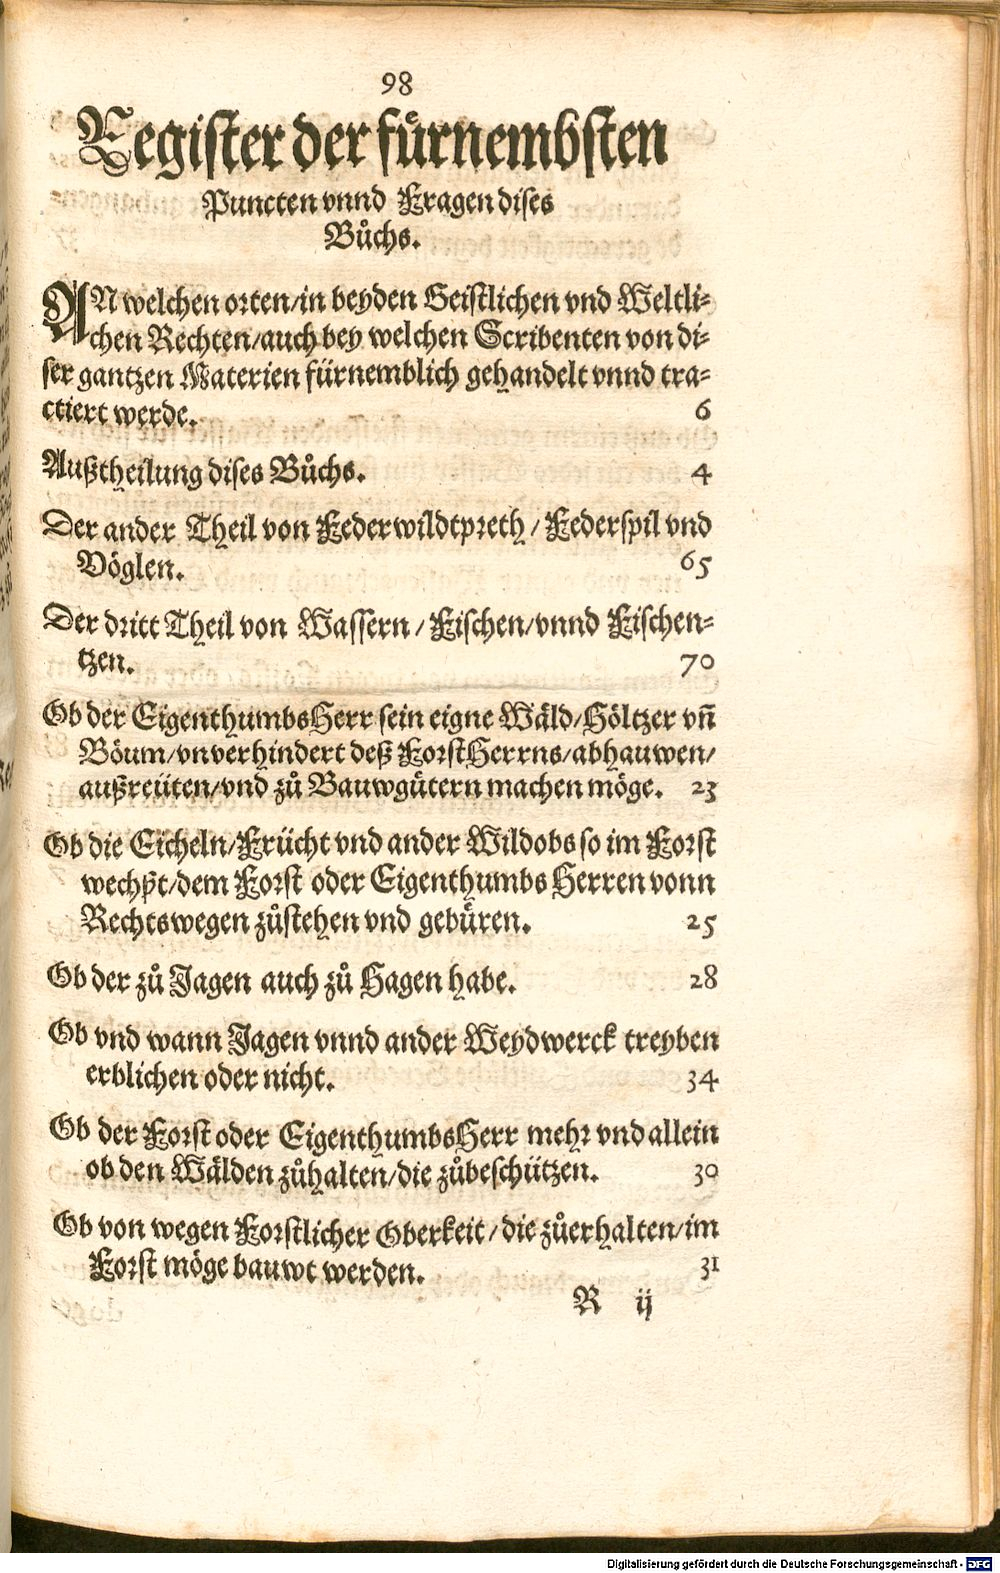 98
Register der fürnembsten
Puncten vnnd Fragen dises
Bůchs.
AN welchen orten/in beyden Geistlichen vnd Weltli-
chen Rechten/auch bey welchen Scribenten von di-
ser gantzen Materien fürnemblich gehandelt vnnd tra-
ctiert werde. 6
Außtheilung dises Bůchs. 4
Der ander Theil von Federwildtpreth/Federspil vnd
Vöglen. 65
Der dritt Theil von Wassern/Fischen/vnnd Fischen-
tzen. 70
Ob der EigenthumbsHerr sein eigne Wäld/Höltzer vñ
Böum/vnverhindert deß ForstHerrns/abhauwen/
außreüten/vnd zů Bauwgütern machen möge. 23
Ob die Eicheln/Frücht vnd ander Wildobs so im Forst
wechßt/dem Forst oder Eigenthumbs Herren vonn
Rechtswegen zůstehen vnd gebüren. 25
Ob der zů Jagen auch zů Hagen habe. 28
Ob vnd wann Jagen vnnd ander Weydwerck treyben
erblichen oder nicht. 34
Ob der Forst oder EigenthumbsHerr mehr vnd allein
ob den Wälden zůhalten/die zůbeschützen. 30
Ob von wegen Forstlicher Oberkeit/die zůerhalten/im
Forst möge bauwt werden. 31
R ij
Digitalisierung gefördert durch die Deutsche Forschungsgemeinschaft - DFG